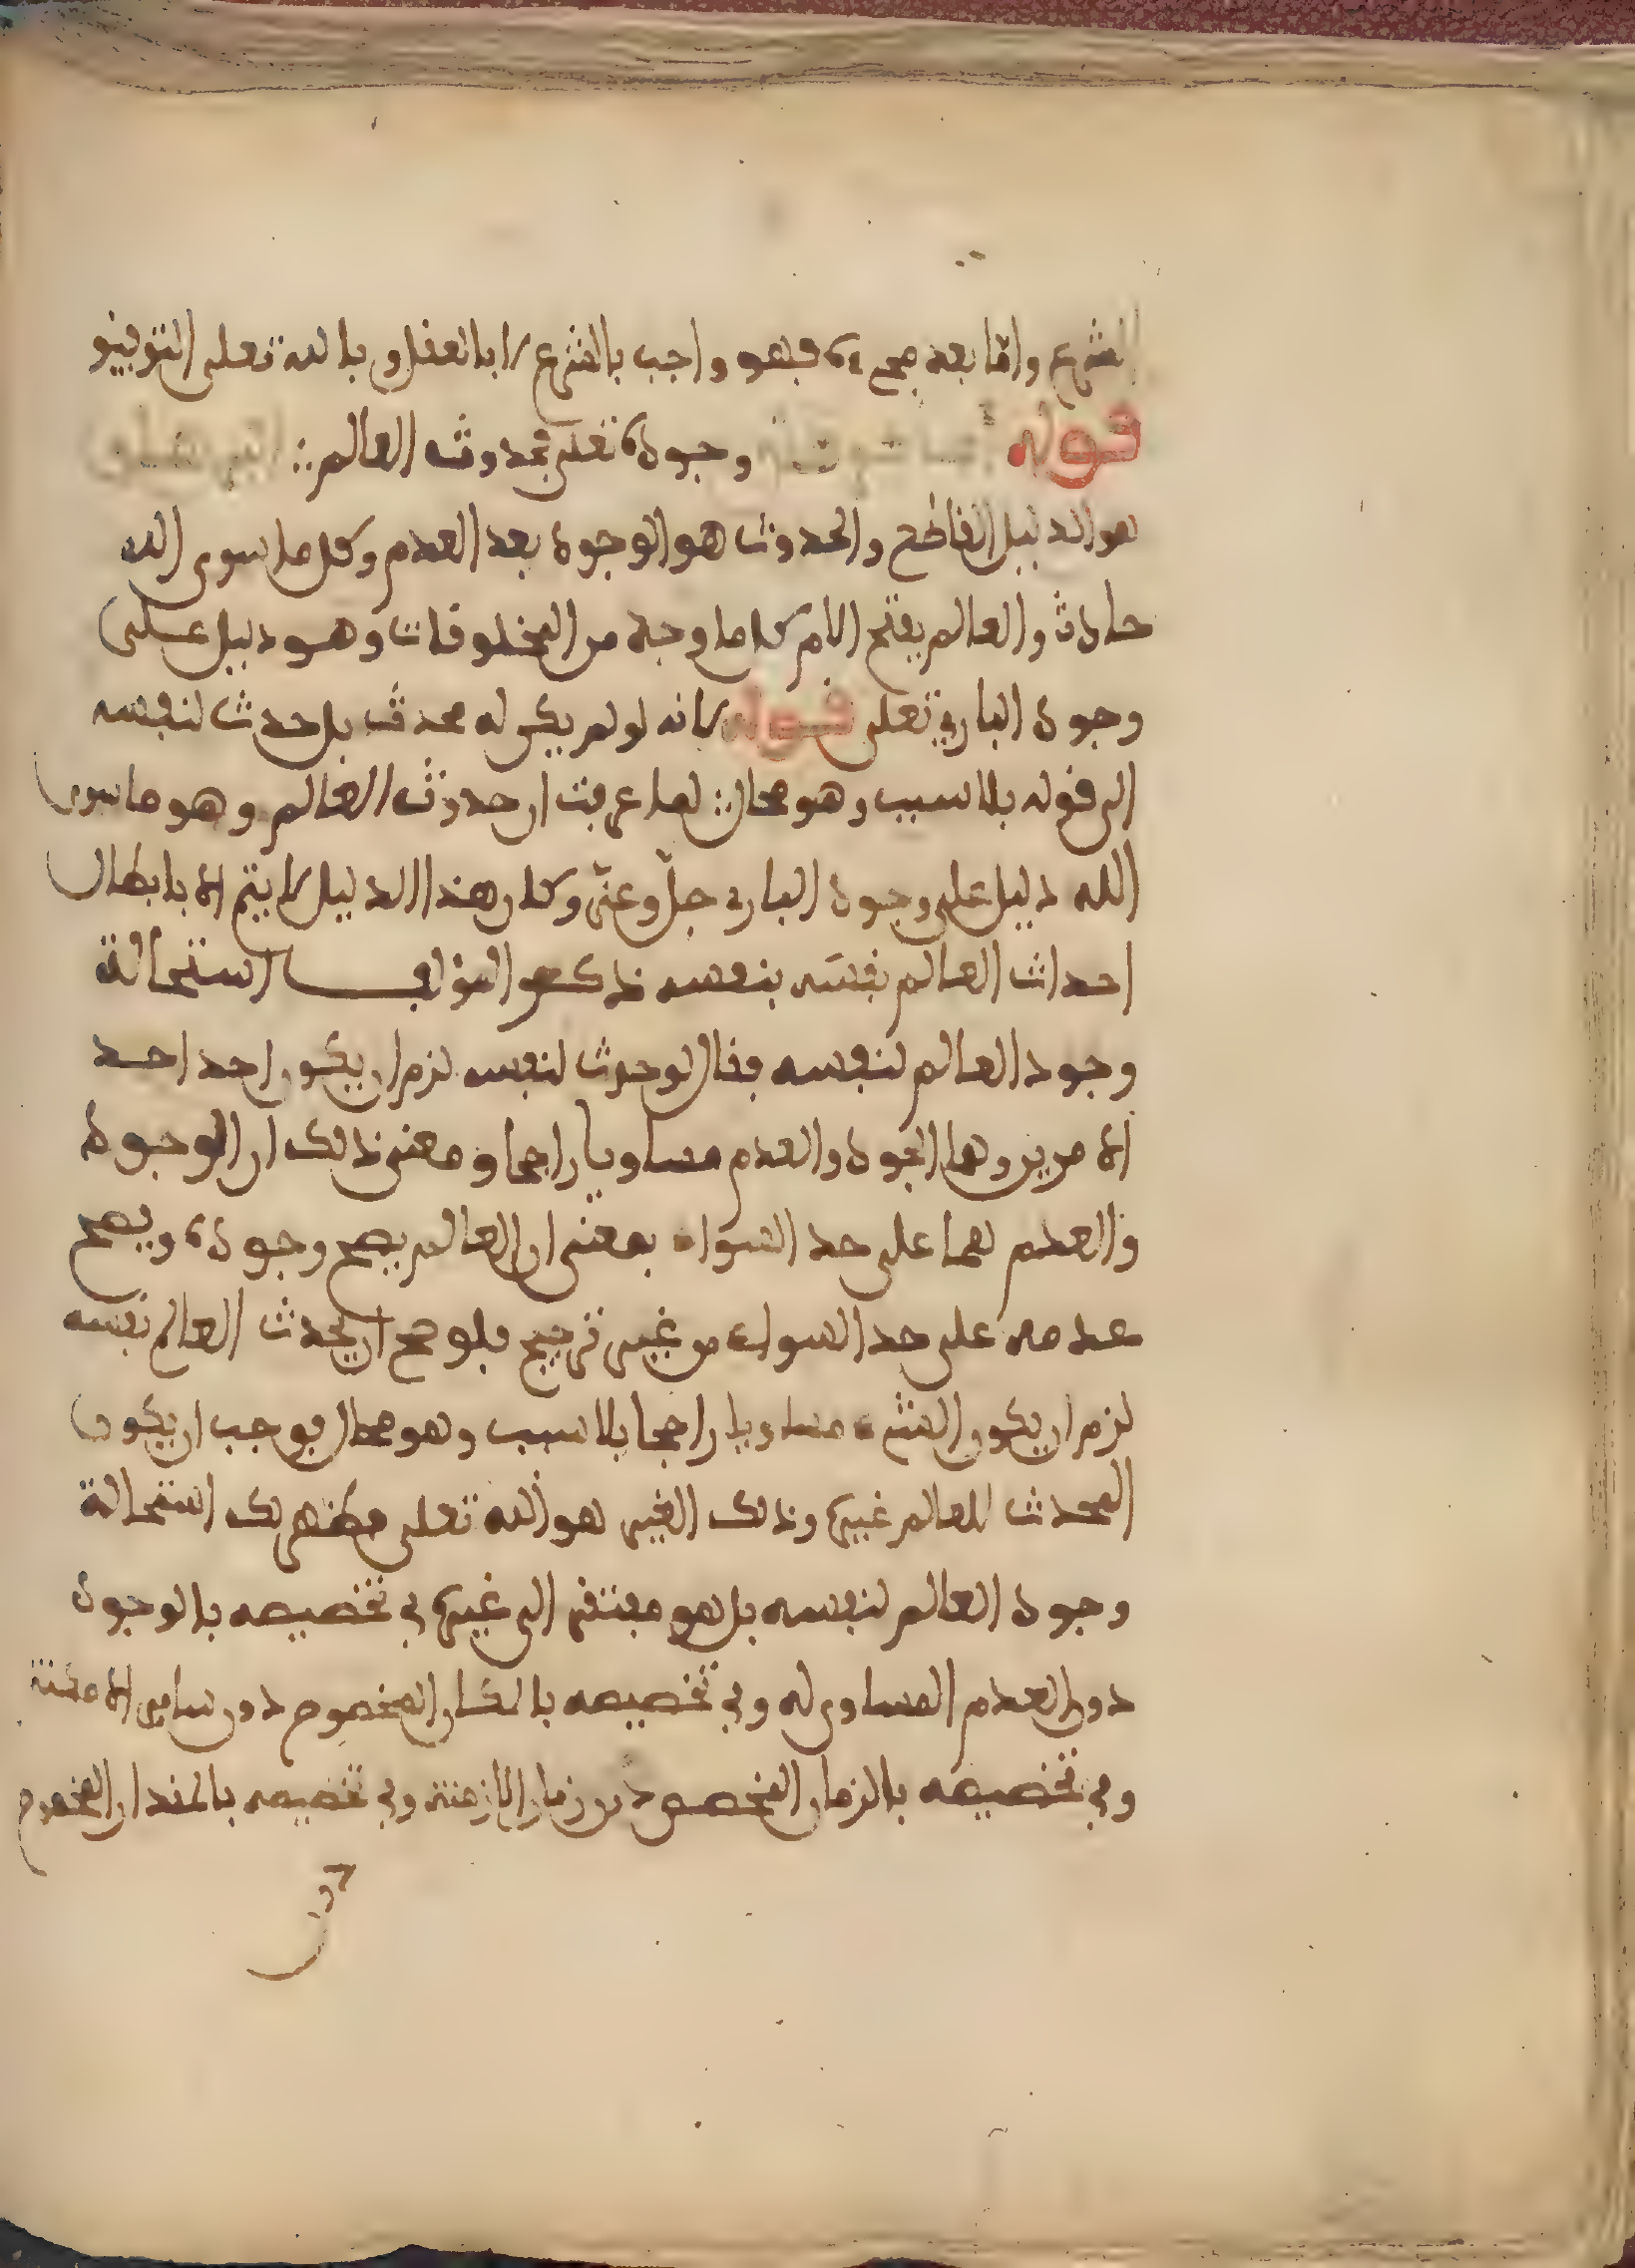 الشرع واما بعد مجيئه فهو واجب بالشرع لا بالعقل وبالله تعلى التوفيق
قوله اما برهان وجوده تعلى فحدوث العالم البرهان
هو الدليل القاطع والحدوث هو الوجود بعد العدم وكل ما سوى الله
حادث والعالم بفتح اللام كلما وجد من المخلوقات وهو دليل على
وجود البارئ تعلى قوله لانه لو لم يكن له محدث بل حدث لنفسه
الى قوله بلا سبب وهو محال لما عرفت ان حدوث العالم وهو ما سوى
الله دليل على وجود البارئ جل وعز وكان هذا الدليل لا يتم الا بابطال
احداث العالم نفسه بنفسه ذكر المؤلف استحالة
وجود العالم لنفسه فقال لو حدث لنفسه لزم ان يكون احد احد
الامرين وهما الوجود والعدم مساويا راجحا ومعنى ذلك ان الوجود
والعدم هما على حد السواء بمعنى ان العالم يصح وجوده ويصح
عدمه على حد السواء من غير ترجيح فلو صح ان يحدث العالم نفسه
لزم ان يكون الشيء مساويا راجحا بلا سبب وهو محال فوجب ان يكون
المحدث للعالم غيره وذلك الغير هو الله تعلى فظهر لك استحالة
وجود العالم لنفسه بل هو مفتقر الى غيره في تخصيصه بالوجود
دون العدم المساوي له وفي تخصيصه بالمكان المخصوص دون ساير الامكنة
وفي تخصيصه بالزمان المخصوص دون زمان الازمنة وفي تخصيصه بالمقدار المخصوص
دون